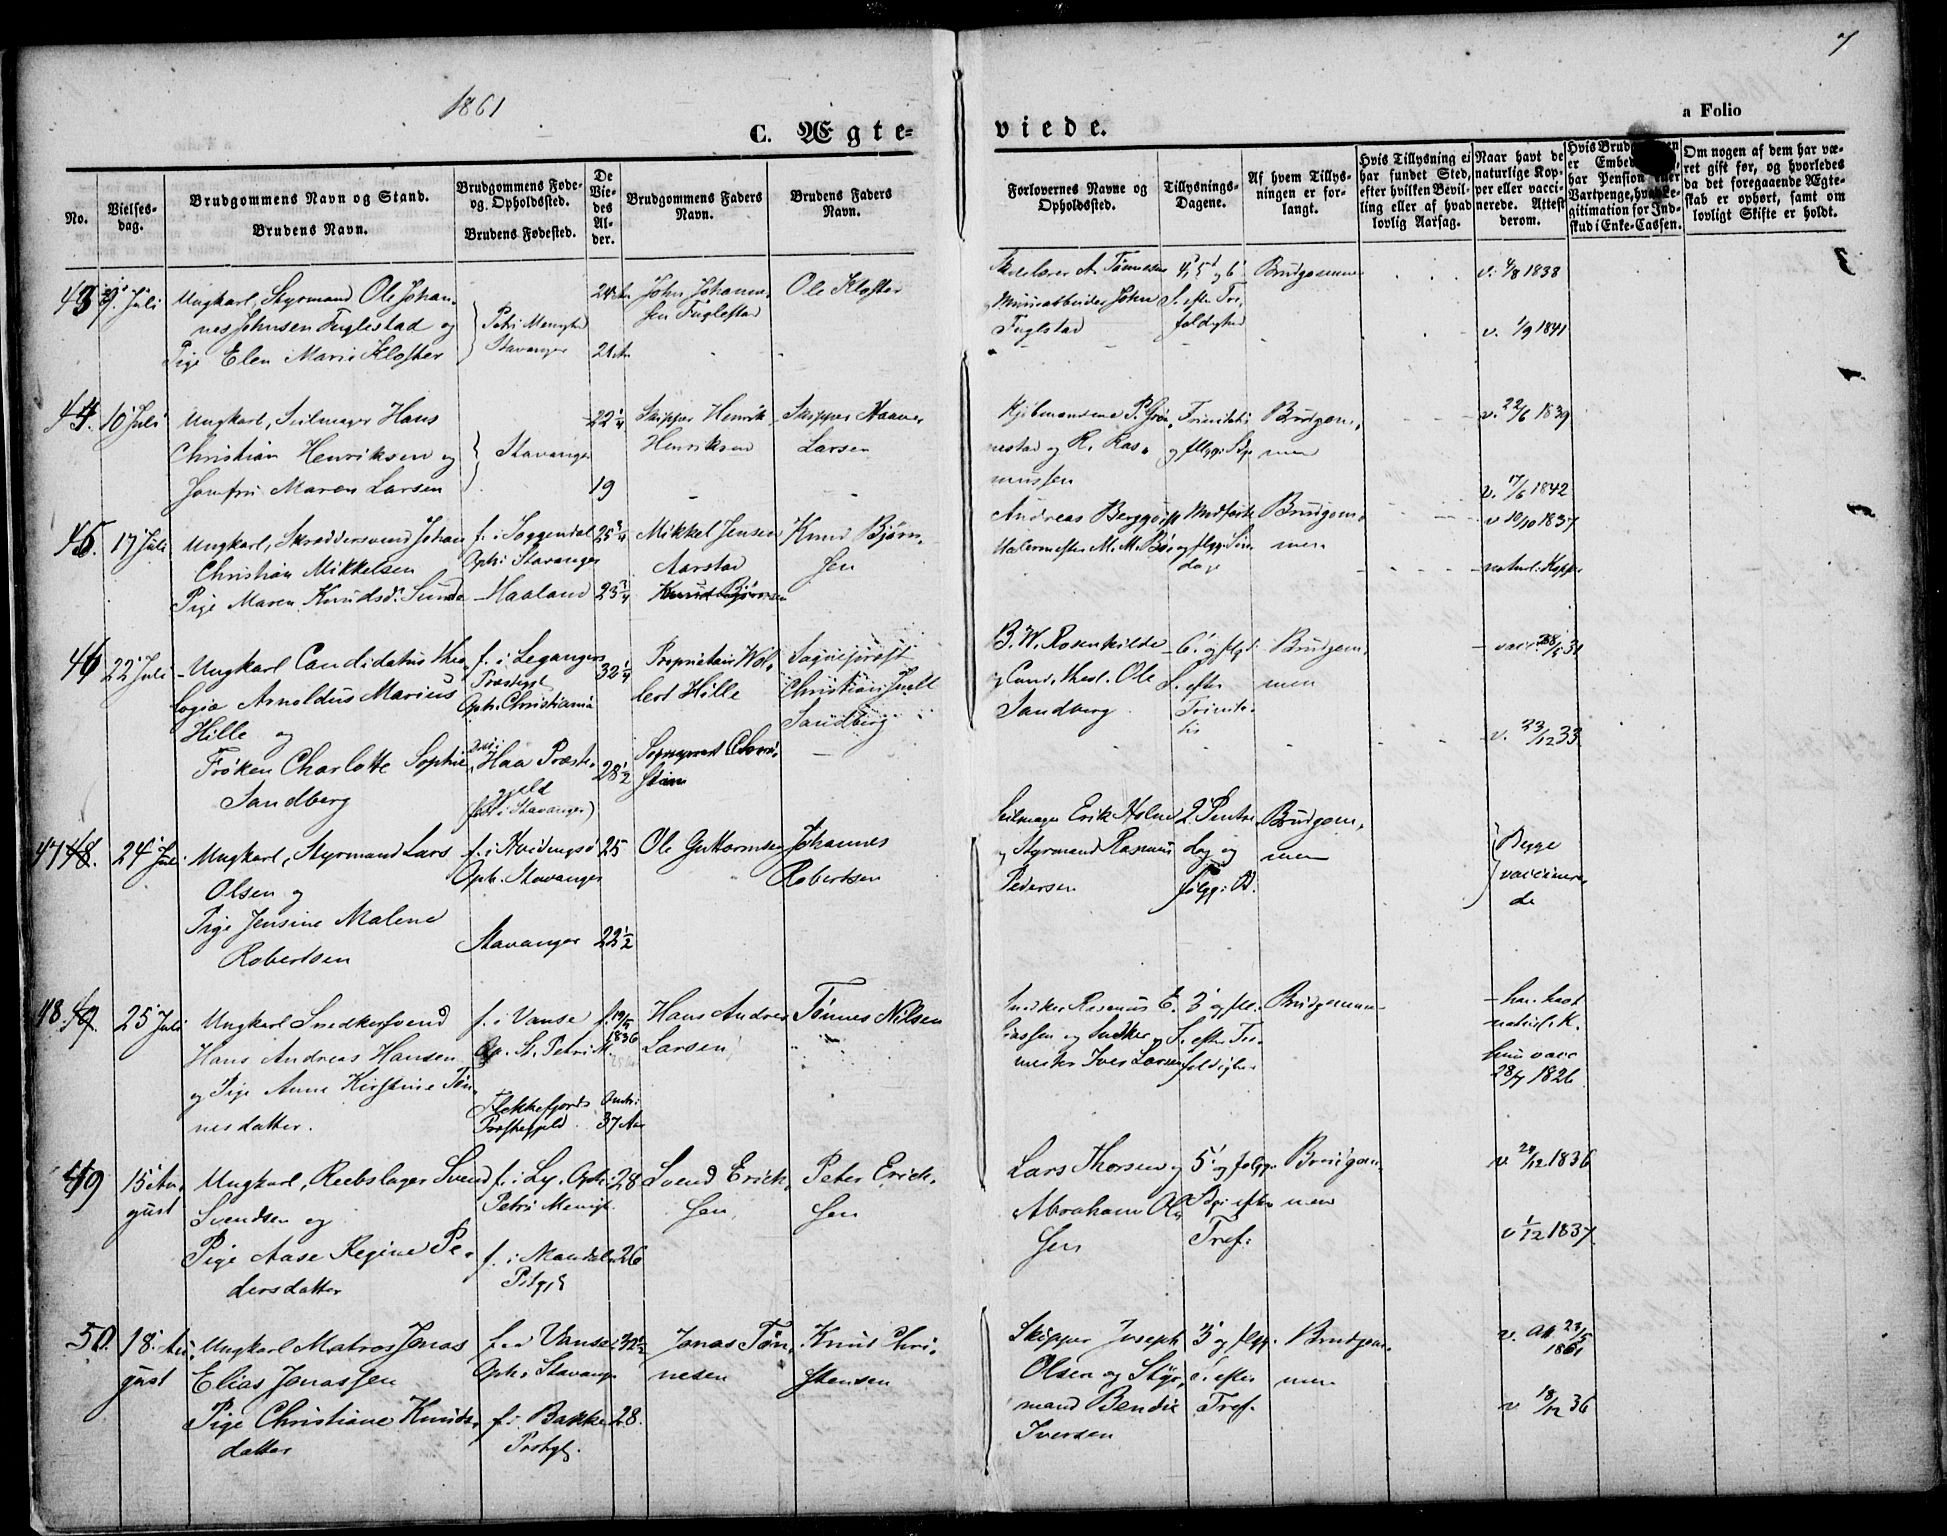 1861
7
a Folio
C. Ægte-
viede.
No.
Vielses-
dag.
Brudgommens Navn og Stand.
Brudens Navn.
Brudgommens Føde-
og Opholdssted.
Brudens Fødested.
De
Vie-
des
Al-
der.
Brudgommens Faders
Navn.
Brudens Faders
Navn.
Forlovernes Navne og
Opholdssted.
Tillysnings-
Dagene.
Af hvem Tillys-
ningen er for-
langt.
Hvis Tillysning ei
har fundet Sted,
efter hvilken Bevil-
ling eller af hvad
lovlig Aarsag.
Naar havt de
naturlige Kop-
per eller vacci-
nerede. Attest
derom.
er
har Pension eller
Vartpenge,
gitimation for Ind-
skud i Enke-Cassen.
Om nogen af dem har væ-
ret gift før, og hvorledes
da det foregaaende Ægte-
skab er ophørt, samt om
lovligt Skifte er holdt.
43 9. Juli
Ungkarl, Styrmand Ole Johan-
nes Johnsen Fuglestad og
Pige Elen Marie Kloster
Petri Menighed
Stavanger
24 Aar
21 Aar
John Johann-
sen Fuglestad
Ole Kloster
Skolelærer A. Tønnesen
og Muurarbeider John
Fuglstad
4, 5 og 6
S. efter Tre-
foldighed
Brudgommen
v. 4/8 1838
v. 1/9 1841
44. 10 Juli
Ungkarl, Seilmager Hans
Christian Henriksen og
Jomfru Maren Larsen
Stavanger
22 1/4
19
Skipper Henrik
Henriksen
Skipper
Larsen
Kjøbmændene P. Grøn-
nestad og R. Ras-
mussen
Trinitatis
og flgg. Sdg.
Brudgom-
men
v. 22/6 1839
v. 17/6 1842
45. 17 Juli
Ungkarl, Skræddersvend Johan
Christian Mikkelsen
Pige Maren Knudsdr. Sunde
f. i Soggendal
Oph. i Stavanger
Haaland
25 3/4
23 3/4
Mikkel Jensen
Aarstad
Knud Bjørnsen
Knud Bjørn-
sen
Andreas Berggvist
Malermester M. M. Bøe
og flgg. Søn-
dage
Brudgom-
men
v 10/10 1837
naturl. Kopper
46 22 Juli
Ungkarl Candidatus theo-
logiæ Arnoldus Marius
Hille og
Frøken Charlotte Sophie
Sandberg
f. i Leganger
Præstegd
Oph. Christiania
Haa Præste-
gjeld
(født i Stavanger)
32 1/4
28 1/2
Proprietair Wol-
lert Hille
Sogneprest Chri-
stian
Sogneprest
Christian Juell
Sandberg
B. W. Rosenkilde
og Cand. theol. Ole
Sandberg
6. og flgd.
S. efter
Trinita-
tis
Brudgom-
men
v. 23/12 33
47 48. 24 Juli
Ungkarl, Styrmand Lars
Olsen og
Pige Jensine Malene
Robertsen
f. i Hvidingsø
Oph. Stavanger
Stavanger
25
22 1/2
Ole Guttormsen
Johannes
Robertsen
Seilmager Erik Holm
og Styrmand Rasmus
Pedersen
2. Pintse
dag og
følgg.
Brudgom-
men
Begge
vaccinere-
de
48. 49. 25 Juli
Ungkarl Snedkersvend
Hans Andreas Hansen
og Pige Anne Kirstine Tøn-
nesdatter.
f. i Vanse
Op. St. Petri M.
Flekkefjords
Præstegjeld
1836
37 Aar
Hans Andreas
Larsen
Tønnes Nilsen
Snedker Rasmus E.
og Snedker-
mester Iver Larsen
3 og flg.
S. efter Tre-
foldighed
Brudgommen
han havt
naturl. K.
hun vacc
28/7 1826
49 15 Au-
gust
Ungkarl, Reebslager Svend
Svendsen og
Pige Aase Regine Pe-
dersdatter
f. i Ly. Oph.
Petri Menigh.
f. i Mandals
Pstgjd
28
26
Svend Erick-
sen
Peter Erick-
sen
Lars Thorsen og
Abraham Ol-
sen
5 og følgg.
Sdg. efter
Tref.
Brudgom-
men
v 1836
v 1/12 1837
50. 18. Au-
gust
Ungkarl Matros Jonas
Elias Jonassen
Pige Christiane Knuds-
datter
f. i Vanse
Oph. i Stavanger
f. i Bakke
Prstgj.
28.
Jonas Tøn-
nesen
Knud Chri-
stensen
Skipper Joseph
Olsen og Styr-
mand Bendix
Iversen
3 og flgg.
S. efter
Tref.
Brudgom-
men
v. Att. 23/5
1861
v 18/12 36